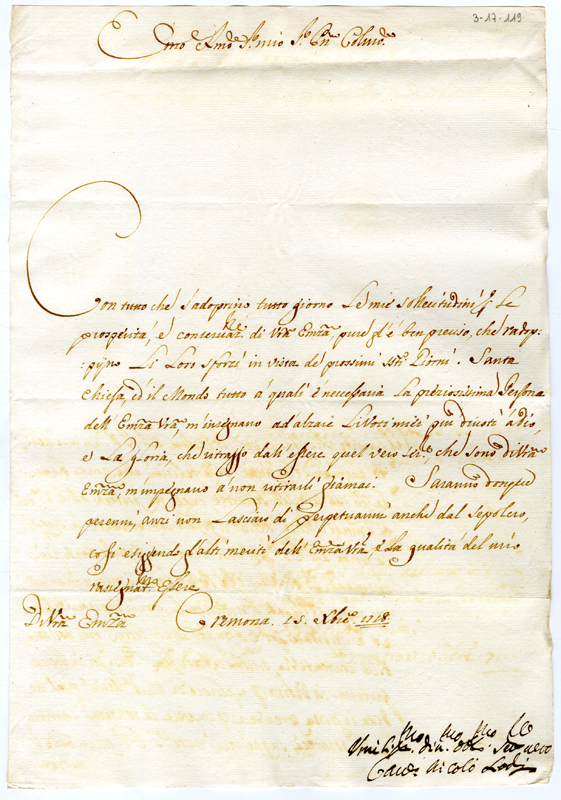 3-17-119
Emo Rmo Sig.r mio Sig.r Pne Colmo.
Con tutto che s'adoprino tutto giorno le mie sollecitudini p. le
prosperità, è conservaz.ne di Vrã Emzã, pure gl'è ben preciso, che radop:
:pijno li loro sforzi in vista de prossimi Sti. Giorni. Santa
Chiesa, ed il Mondo tutto à quali è necessaria la preziosissima Persona
dell'Emzã Vrã, m'insegnano ad alzare li Voti miei più divoti à Dio
e la gloria, che ritraggo dall'essere quel vero Ser.e, che sono di Vrã
Emzã, m'impegnano à non ritirarli giamai. Saranno donque
perenni, anzi non lasciarò di perpetuarmi anche dal sepolcro,
così esiggendo gl'alti meriti dell'Emzã Vrã, è la qualità del mio
rasegnat.mo Essere
Di Vrã Emzã Cremona. 15. Xbre. 1718.
Umiliss.mo div.mo obl.mo Ser.re vero
Nicolò Lodi